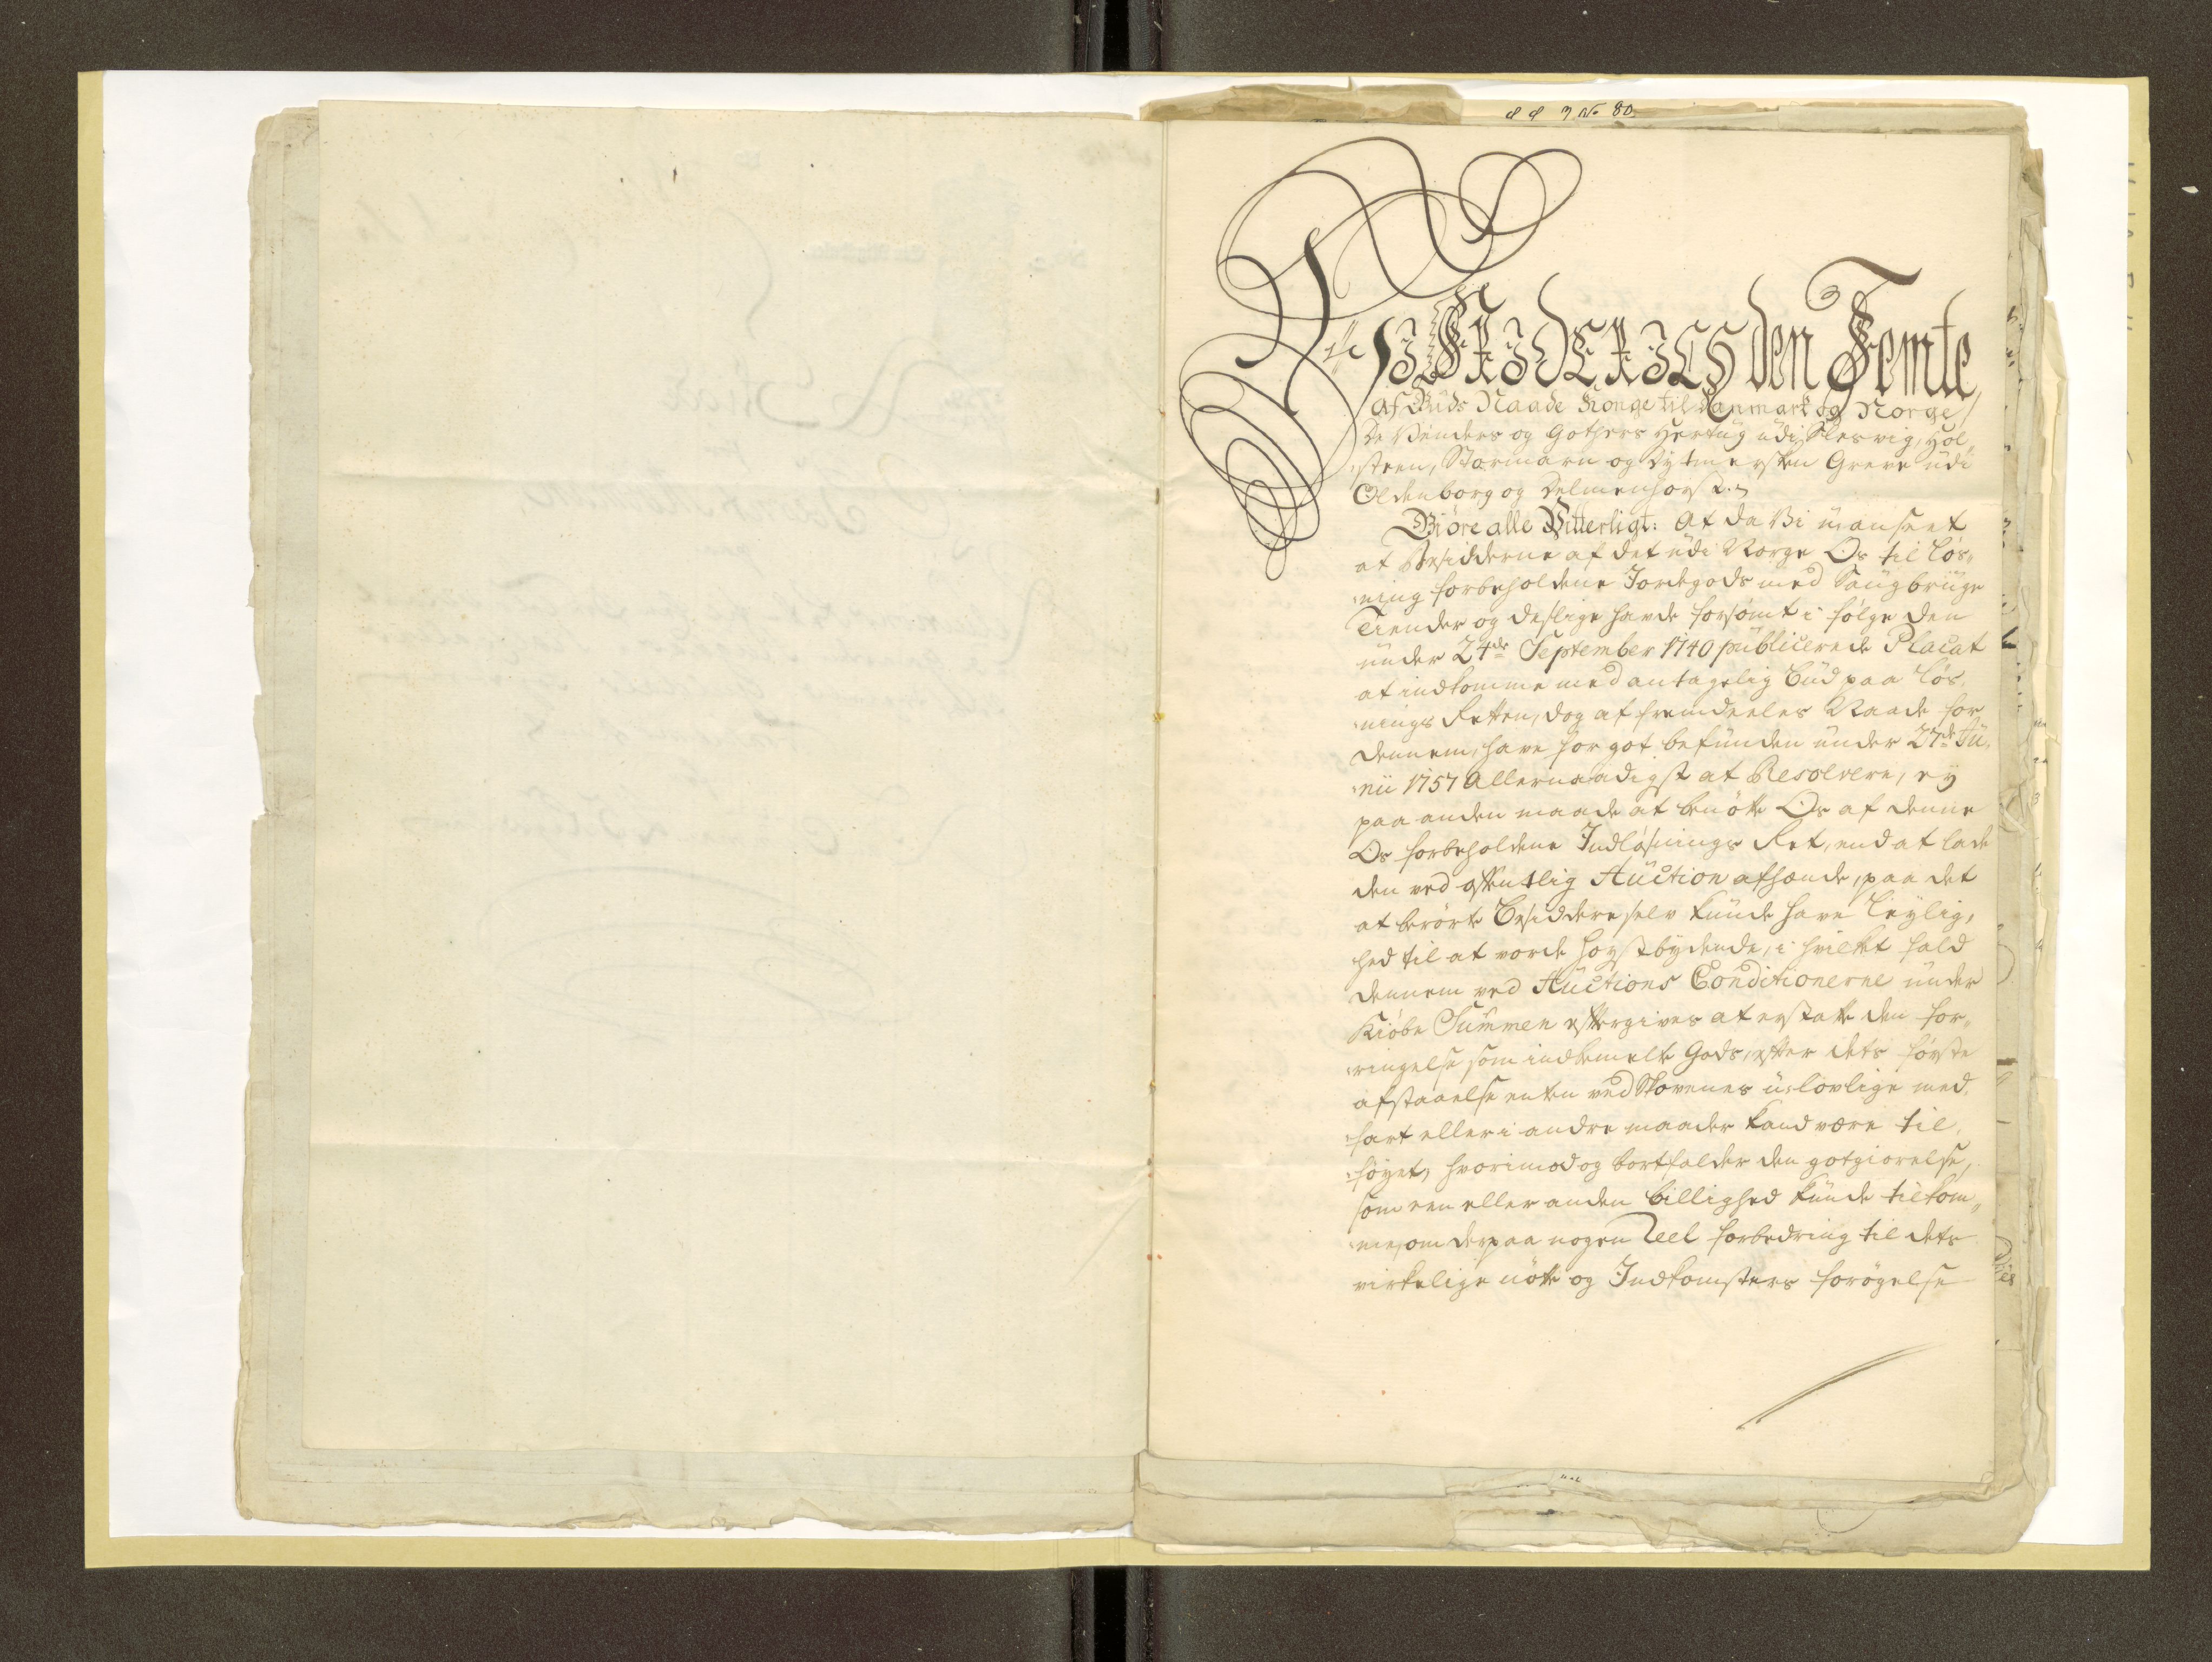 No 80
Vi FRIDERICH den Femte,
Af Guds Naade Konge til Danmark og Norge,
De Venders og Gothers Hertug udi Slesvig, Hol,,
,,steen, Stormarn og Dytmersken Greve udi
Oldenborg og Delmenhorst. ~
Giöre alle Vitterligt: At da Vi uanseet
at Besidderne af det udi Norge Os til løs,,
,,ning forbeholdene Jordegods med Saugbruge
Tiender og deslige havde forsømt i følge den
under 24de September 1740 publicerede Placat
at indkomme med antagelig Bud paa løs,,
,,nings Retten, dog af fremdeeles Naade for
dennem, have for got befunden under 27de Ju,,
,,nii 1757 Allernaadigst at Resolvere, ey
paa anden maade at benötte Os af denne
Os forbeholdene Indløsnings Ret, end at lade
den ved offentlig Auction afhænde, paa det
at berørte Besiddere selv kunde have leylig,,
hed til at vorde høystbydende, i hvilket fald
dennem ved Auctions Conditionerne under
Kiöbe Summen eftergives at erstatte den for,,
,,ringelse som indbemelte Gods, efter dets første
afstaaelse enten ved Skovenes u-lovlige med,,
,,fart eller i andre maader kand være til,,
,,föyet, hvorimod og bortfalder den gotgiørelse,
som een eller anden billighed kunde tilkom,,
,,me, om derpaa nogen Reel forbedring til dets
virkelige nötte og Indkomsters forögelse